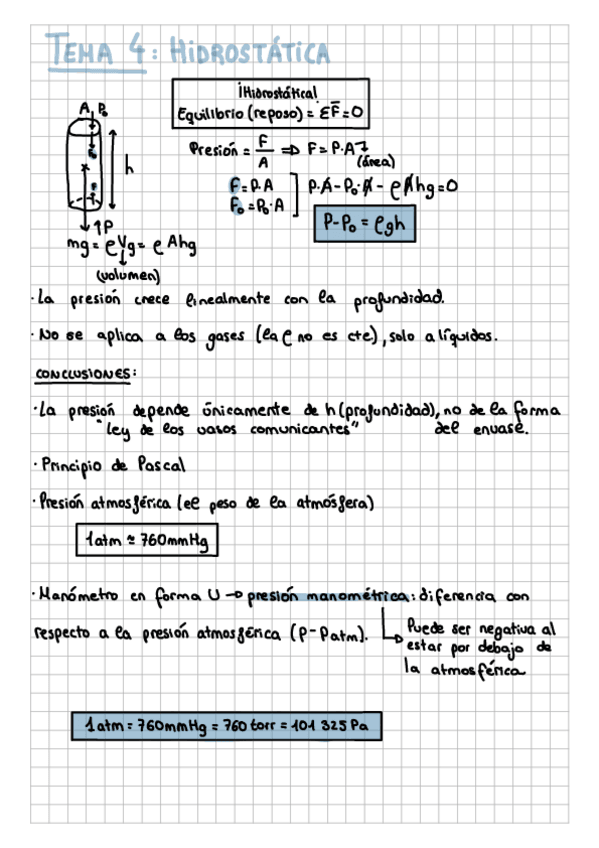 TEMA 4: HIDROSTÁTICA
¡Hidrostática!
Equilibrio (reposo) = ΣF̄ = 0
A P₀
h
↑P
mg = ρVg = ρAhg
(volumen)
Presión = F/A ⇒ F = P·A
(área)
F = P·A
F₀ = P₀·A
P·A - P₀·A - ρAhg = 0
P-P₀ = ρgh
· La presión crece linealmente con la profundidad.
· No se aplica a los gases (la ρ no es cte), solo a líquidos.
CONCLUSIONES:
· La presión depende únicamente de h (profundidad), no de la forma
"ley de los vasos comunicantes" del envase.
· Principio de Pascal
· Presión atmosférica (el peso de la atmósfera)
1atm ≈ 760mmHg
· Manómetro en forma U → presión manométrica: diferencia con
respecto a la presión atmosférica (P-Patm).
Puede ser negativa al
estar por debajo de
la atmosférica
1atm = 760mmHg = 760 torr = 101 325 Pa